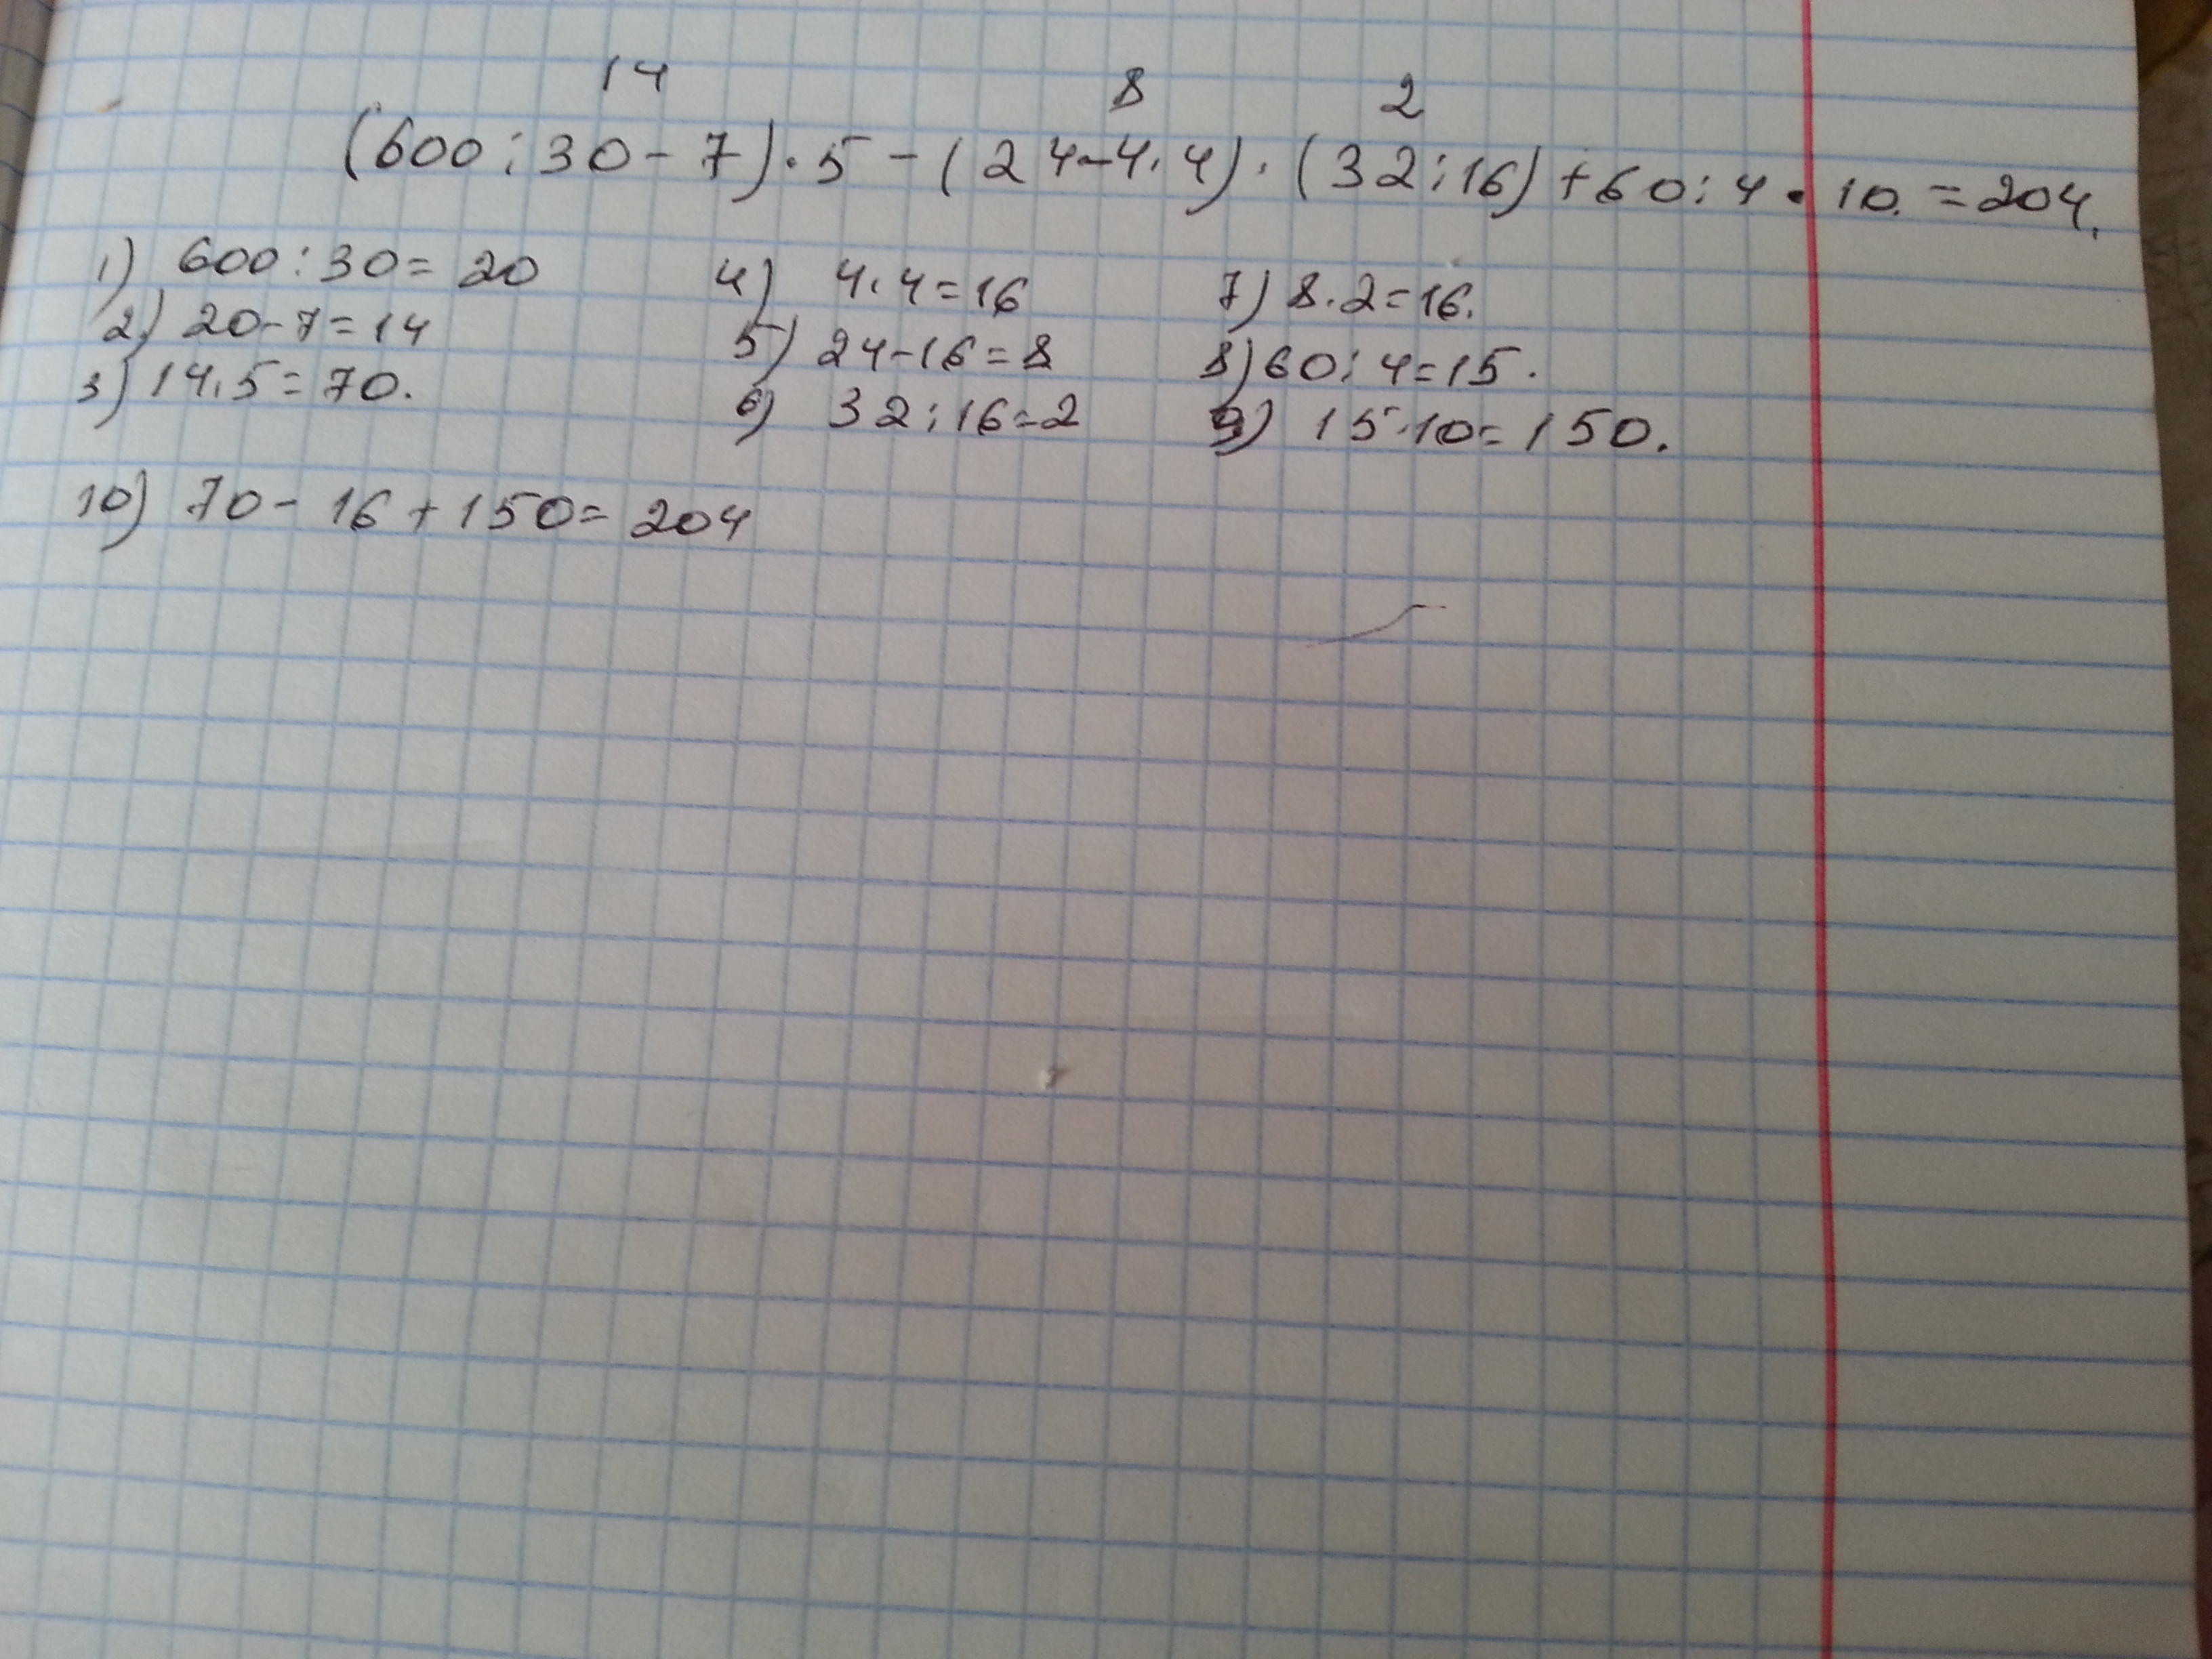 14 8 2
(600:30-7)·5-(24-4·4)·(32:16)+60:4·10.=204.
1) 600:30=20 4) 4·4=16 7) 8·2=16.
2) 20-7=14 5) 24-16=8 8) 60:4=15.
3) 14·5=70. 6) 32:16=2 9) 15·10=150.
10) 70-16+150=204